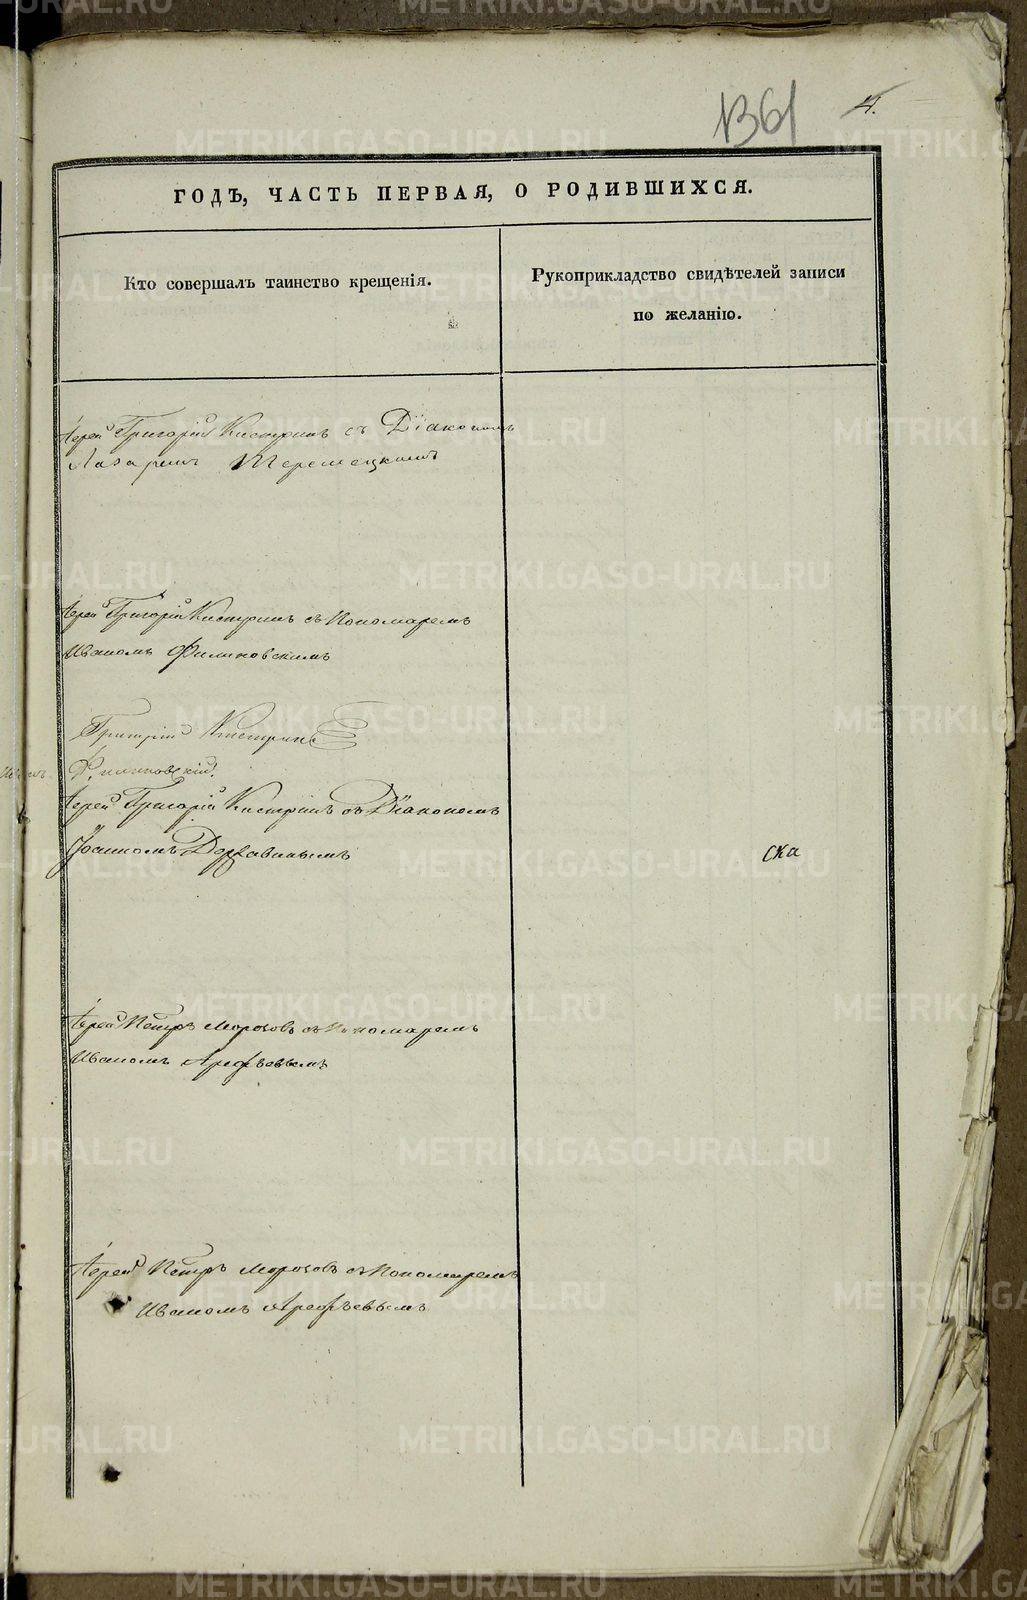 1361
4.
ГОДЪ, ЧАСТЬ ПЕРВАЯ, О РОДИВШИХСЯ.
Кто совершалъ таинство крещенія.
Рукоприкладство свидѣтелей записи
по желанію.
Іерей Григорій Кистринъ съ Діакономъ
Лазаремъ
Іерей Григорій Кистринъ съ Пономаремъ
Иваномъ Филиновскимъ
Григорій Кистринъ
Филиновскій.
Іерей Григорій Кистринъ съ Діакономъ
Іоанномъ Державинымъ
ска
Іерей Петръ Морозовъ съ Пономаремъ
Иваномъ Арефьевымъ
Іерей Петръ Морозовъ съ Пономаремъ
Иваномъ Арефьевымъ
METRIKI.GASO-URAL.RU